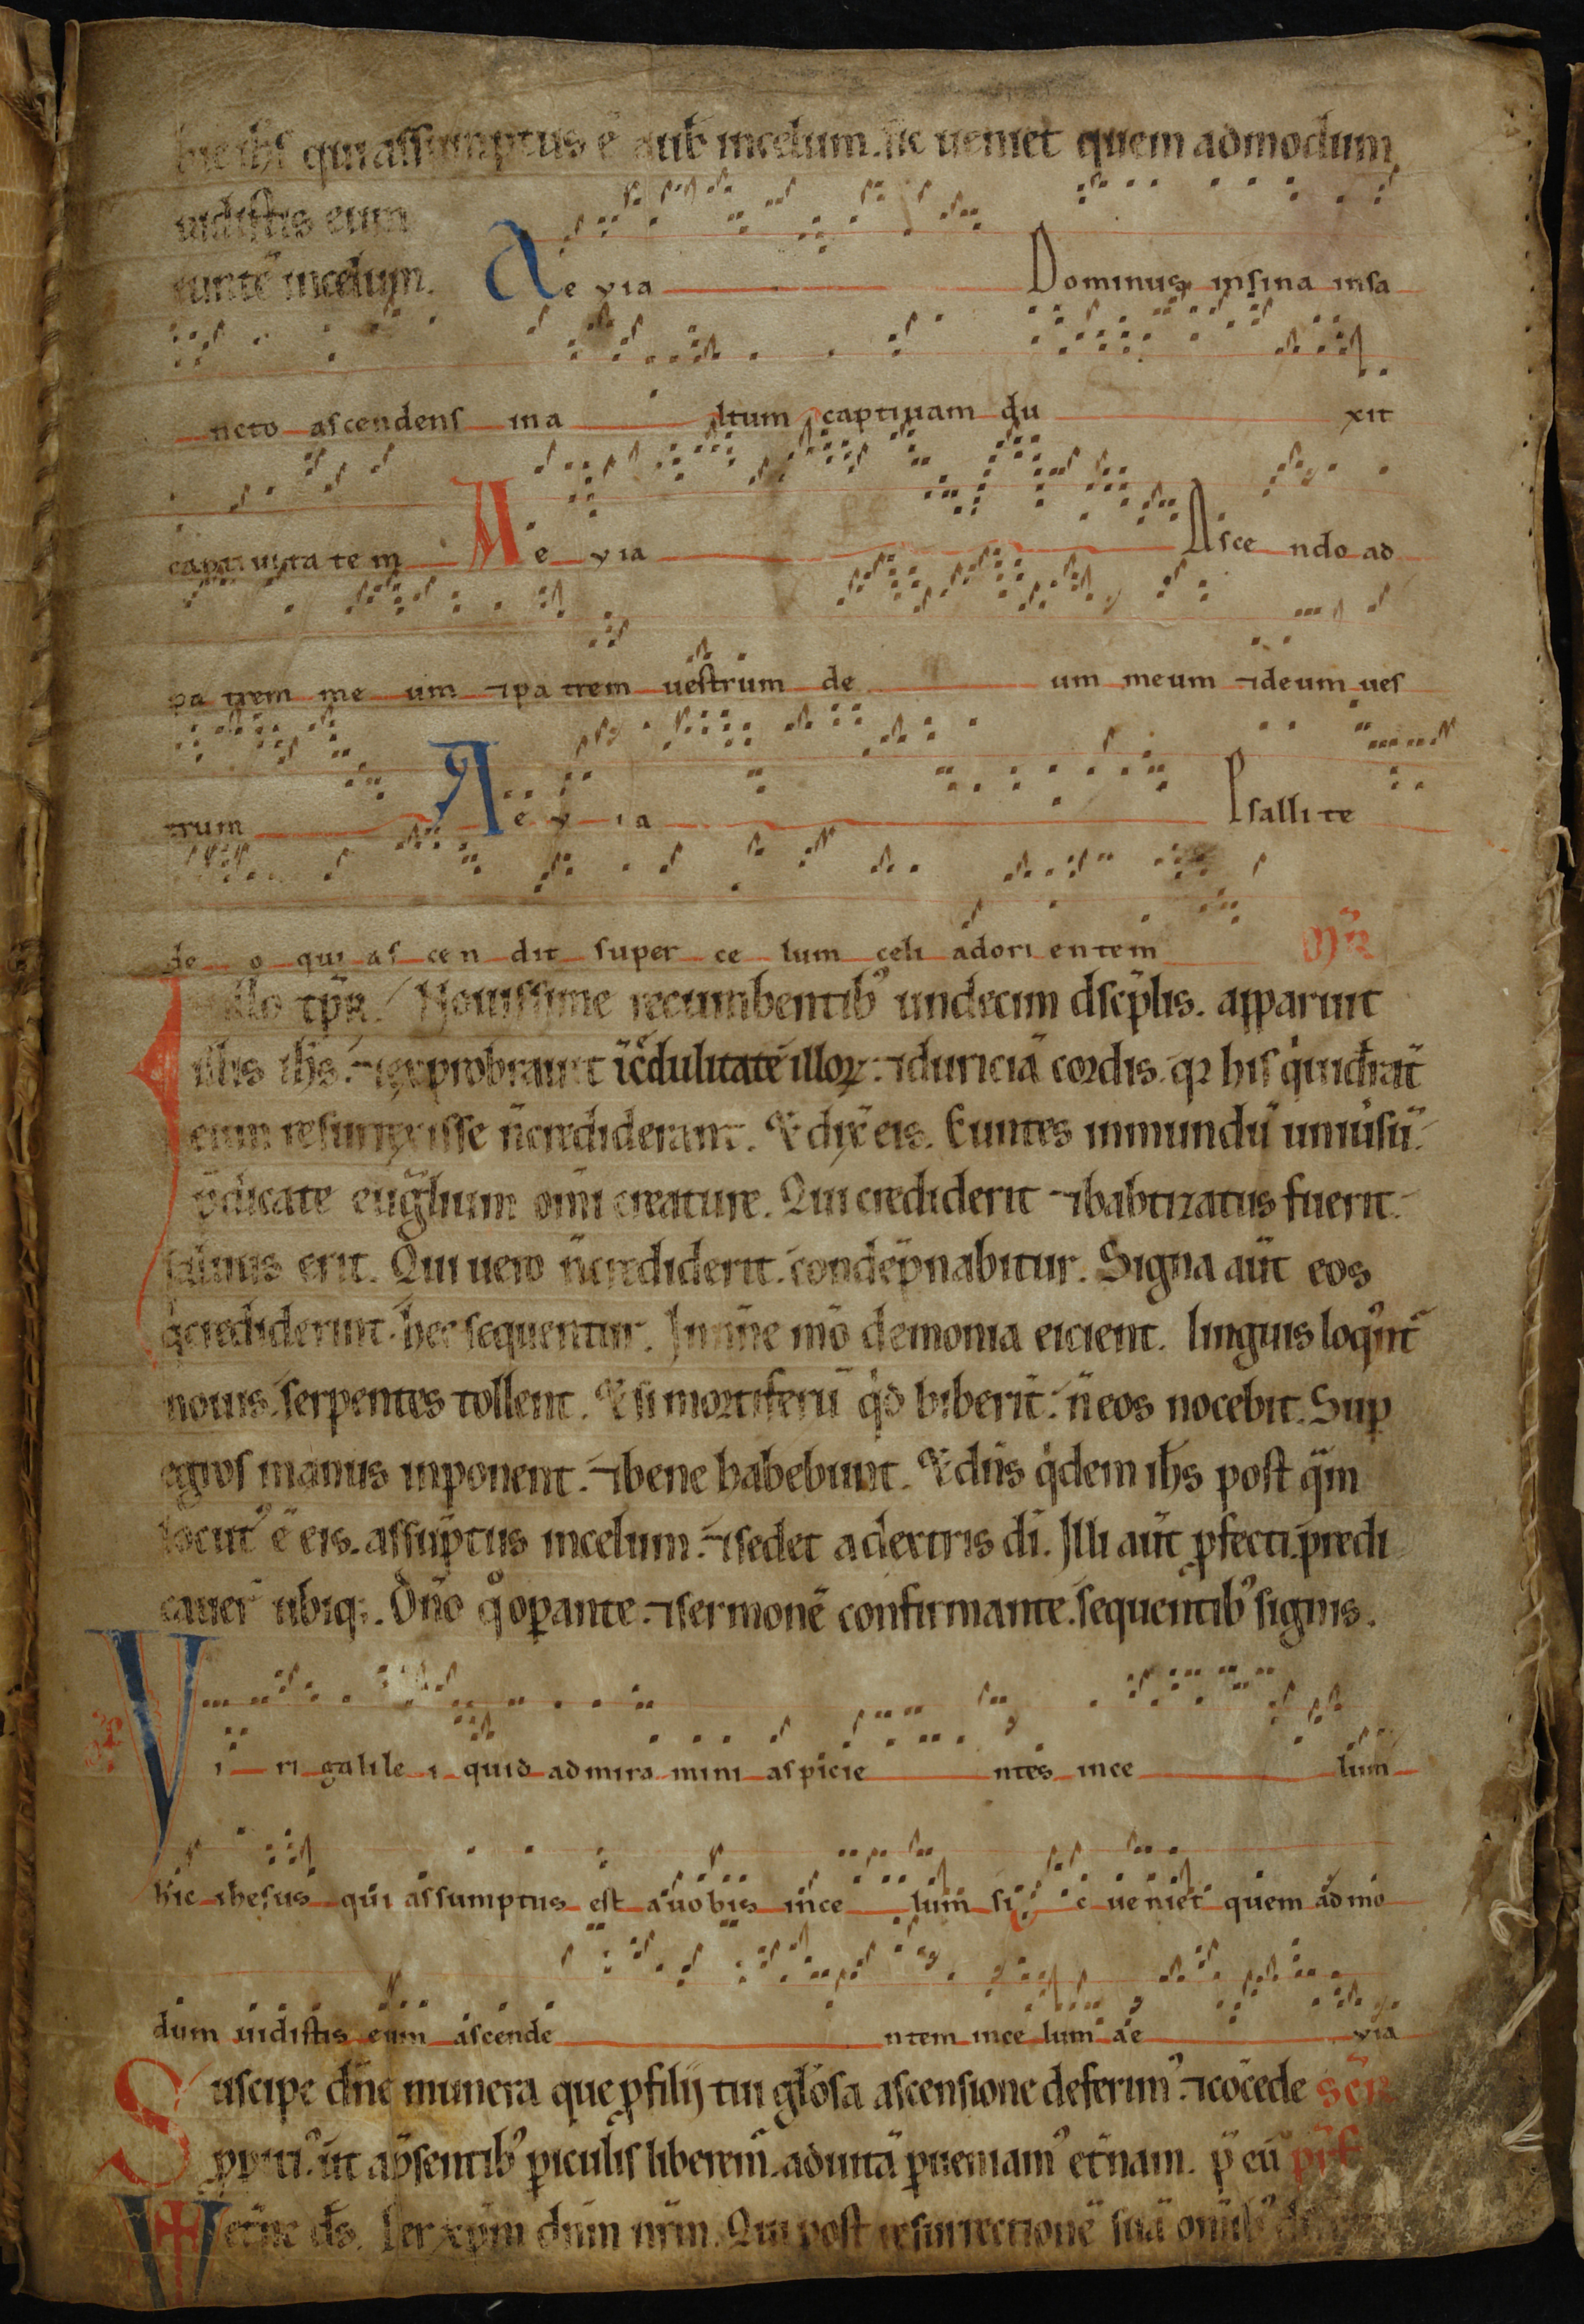 hic ihs qui assumptus ē a uob incelum. sic ueniet quem admodum
uidistis eum
euntē incelum. Ae via Dominus insina insa
ncto ascendens ina ltum captiuam du xit
captiuita te m Ae via Asce ndo ad
pa trem me um ⁊pa trem uestrum de um meum ⁊deum ues
trum Ae v ia Psalli te
de o qui as cen dit super ce lum celi adori entem
Illo tpr. Nouissime recumbentib' undecim dscplis. apparuit
illis ihs. ⁊exprobrauit īcdulitatē illoꝝ. ⁊duriciā cordis. qꝛ his qͥ uidrāt
eum resurrexisse n̄crediderant. Et dix̄ eis. Euntes inmundū uniusū.
p̄dicate euglium omi creature. Qui crediderit ⁊babtizatus fuerit.
saluus erit. Qui uero n̄crediderit. condēpnabitur. Signa aūt eos
qͥ crediderint. hec sequentur. Innn̄e mō demonia eicient. linguis loqūt
nouis. serpentes tollent. Et si mortiferū qͥd biberīt. n̄ eos nocebit. Sup
egros manus inponent. ⁊bene habebunt. Et dn̄s qͥdem ihs post qᷓm
locut' ē eis. assūptus incelum. ⁊sedet adextris dī. Illi aūt ꝓfecti. predi
cauer ubiqꝫ. Dn̄o qͦoꝑante. ⁊sermonē confirmante. sequentib' signis.
Vi ri galile i quid admira mini aspicie ntes ince lum
hic ihesus qui assumptus est auobis ince lum si c ueniet quem admo
dum uidistis eum ascende ntem ince lum ae via
Suscipe dn̄e munera que ꝓ filij tui glōsa ascensione deferim'. ⁊cōcede
ut ap̄sentib' ꝑiculis liberem. aduitā ꝑueniam' et̄nam. ꝑ eū
et̄ne ds. ꝑ xp̄m dn̄m nr̄m. Qui post resurrectionē suā omīb'